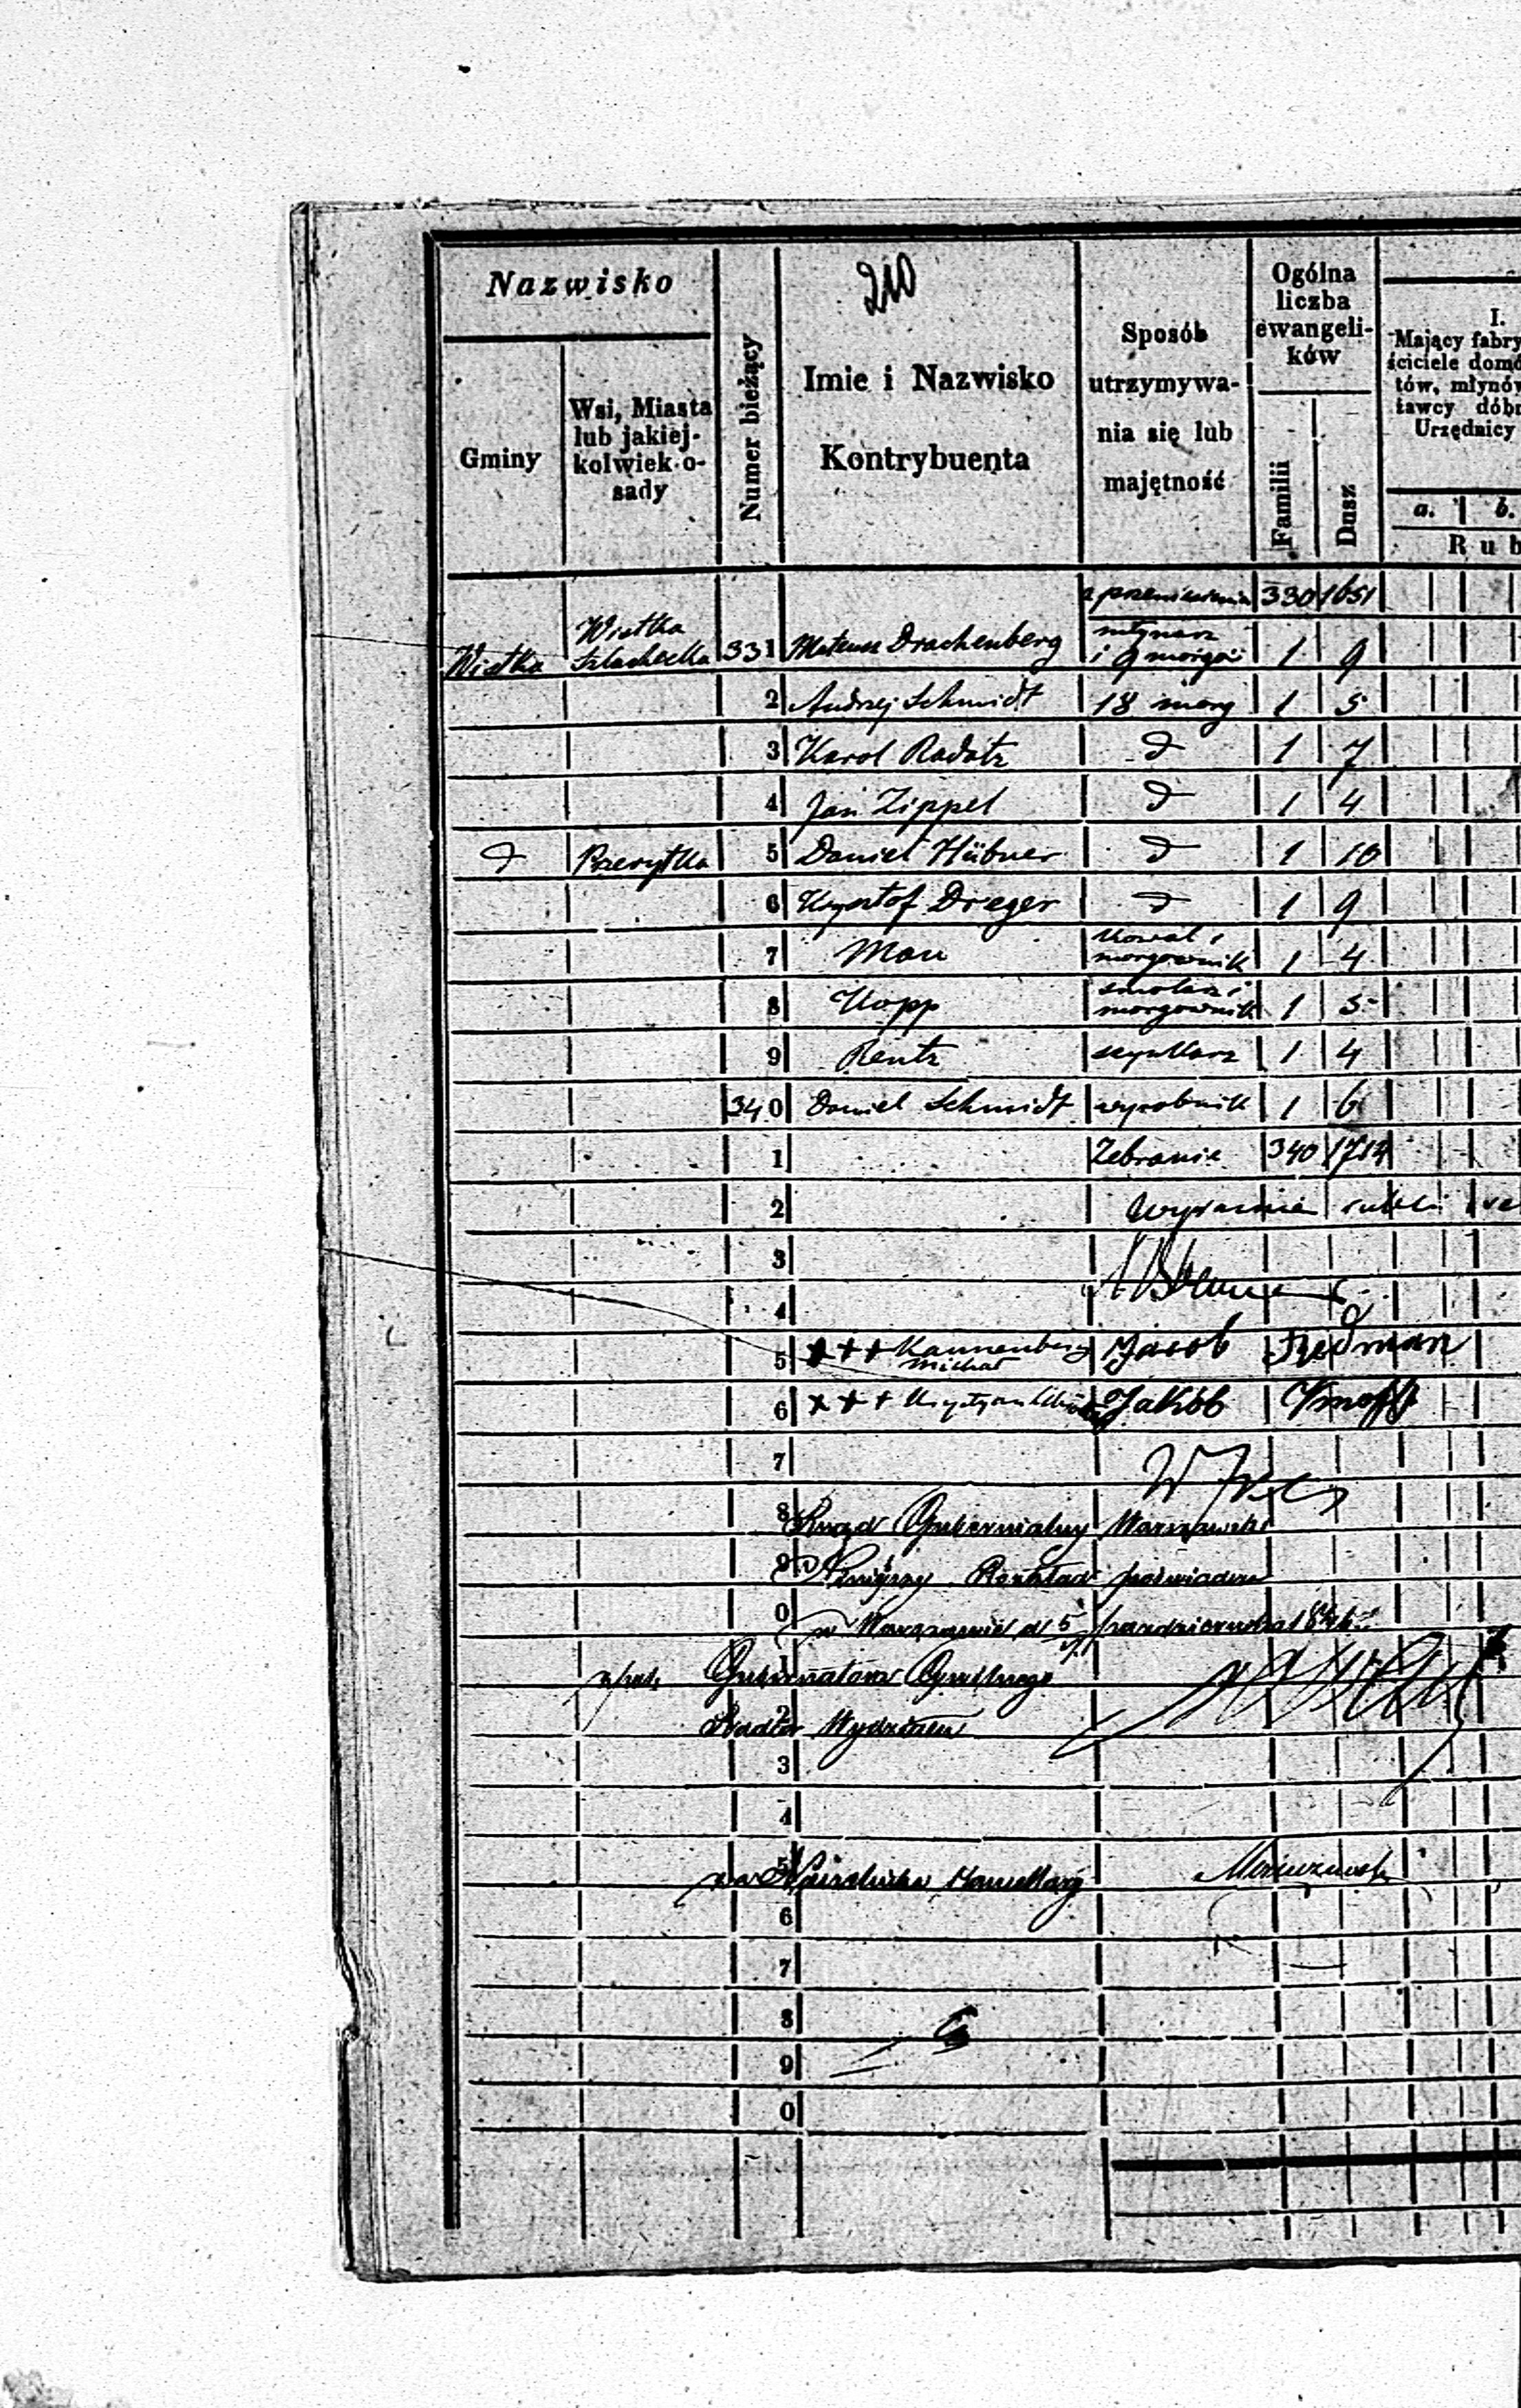 210
Nazwisko
Gminy
Wsi, Miasta
lub jakiej-
kolwiek o-
sady
Numer bieżący
Imie i Nazwisko
Kontrybuenta
Sposób
utrzymywa-
nia się lub
majętność
Ogólna
liczba
ewangeli-
ków
Familii
Dusz
I.
Mający fabry
ściciele domó
tów, młynów
żawcy dóbr
Urzędnicy
a. b.
Rub
z przeniesienia 330 1651
Wistka Wistka Szlachecka 331 Mateusz Drachenberg młynarz i 9 morgów 1 9
2 Andrzej Schmidt 18 morg 1 5
3 Karol Radatz d 1 7
4 Jan Zippel d 1 4
d 5 Daniel Hübner d 1 10
6 Krzysztof Dreger d 1 9
7 Mau kowal i morgownik 1 4
8 Kopp smolarz i morgownik 1 5
9 Rentz szynkarz 1 4
340 Daniel Schmidt wyrobnik 1 6
1 Zebranie 340 1714
2
3
4
5 +++ Kannenberg Michał Jacob
6 +++ Jakob
7
8 Rząd Gubernialny Warszawski
9 Niniejszy Rozkład poświadcza
0 w Warszawie d 5 października 1846
1 Gubernatora Cywilnego
2 Radca Wydziału
3
4
5 Naczelnika Kancellaryi
6
7
8
9
0